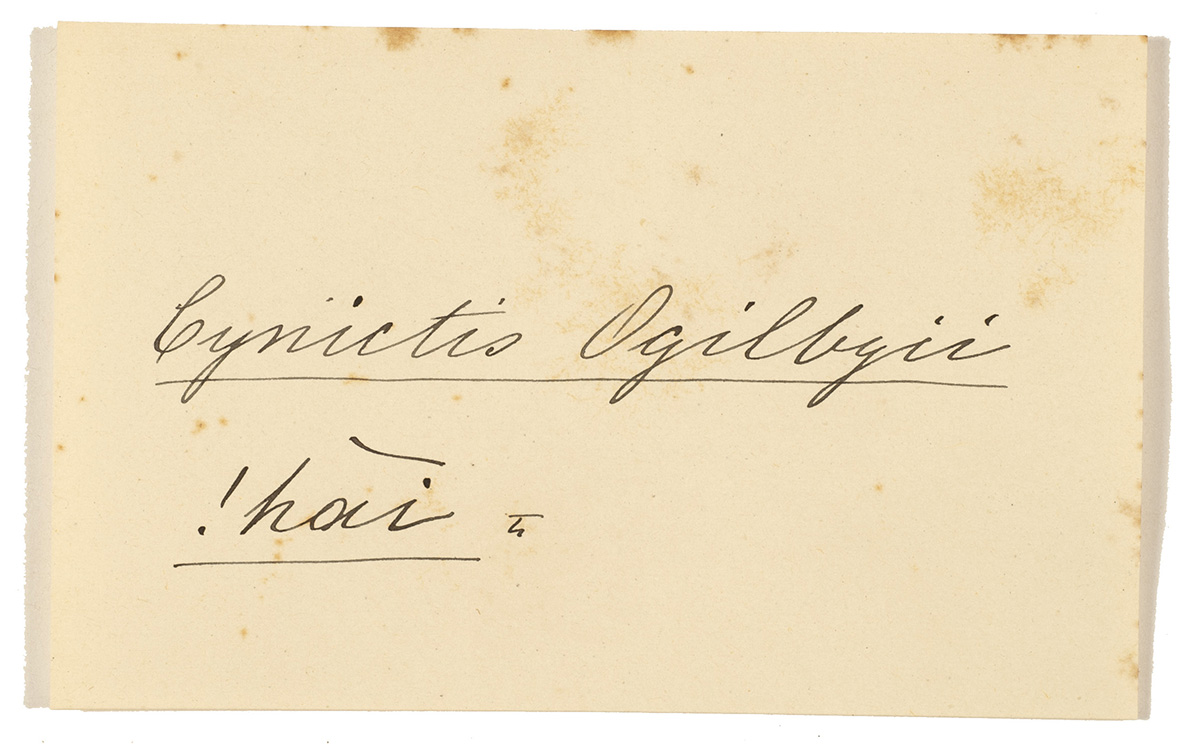 Cynictis Ogilbyii
!hāi =